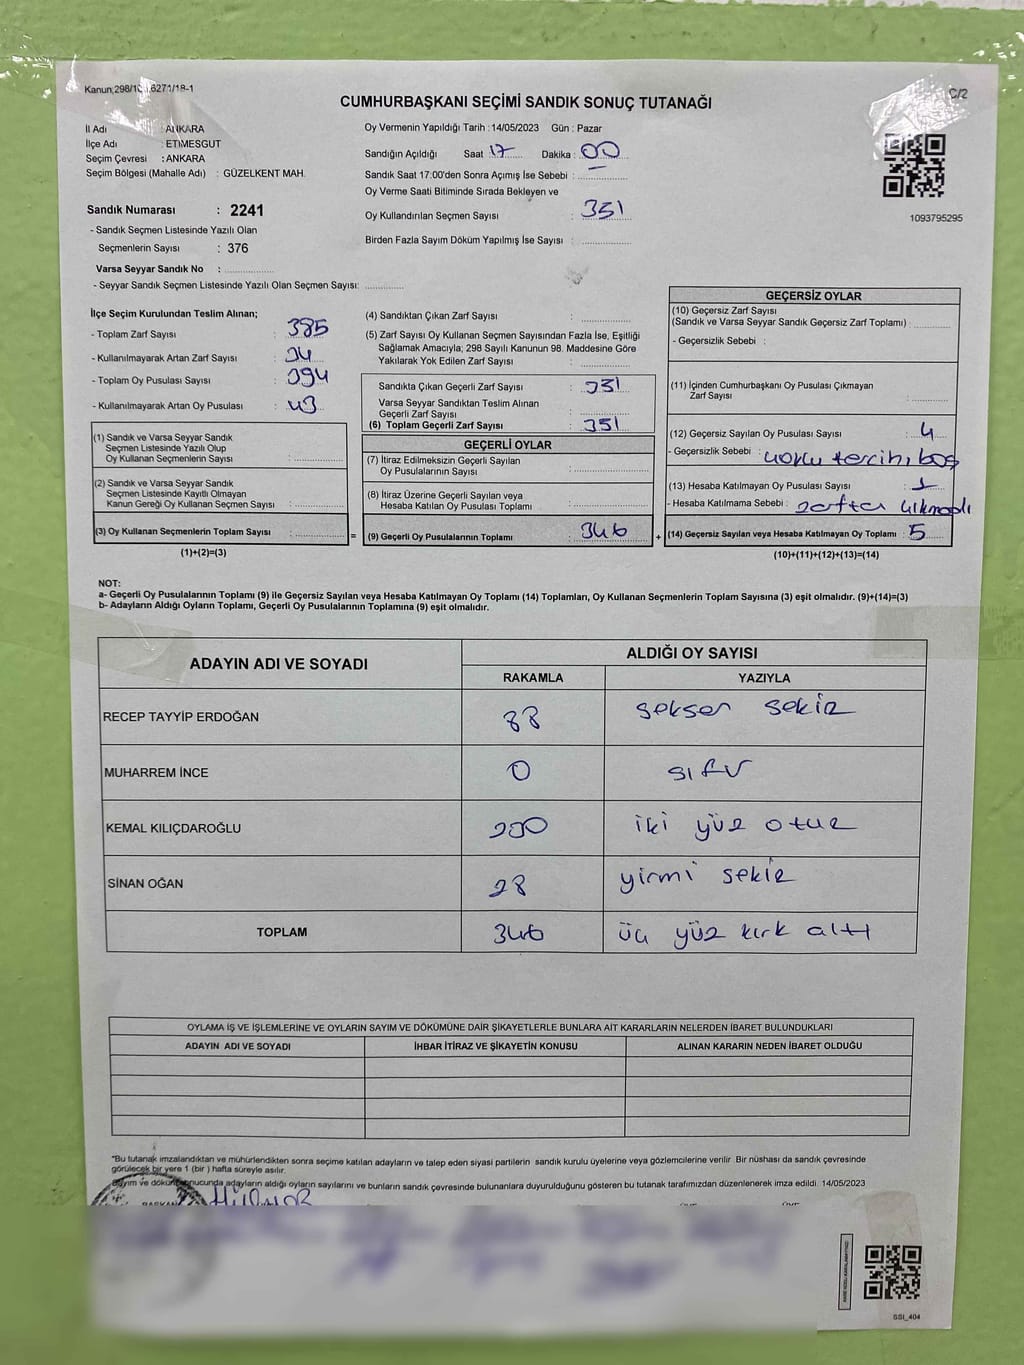 Kanun:298/10 6271/18-1
C/2
CUMHURBAŞKANI SEÇİMİ SANDIK SONUÇ TUTANAĞI
İl Adı : ANKARA
İlçe Adı : ETİMESGUT
Seçim Çevresi : ANKARA
Seçim Bölgesi (Mahalle Adı) : GÜZELKENT MAH.
Sandık Numarası : 2241
- Sandık Seçmen Listesinde Yazılı Olan
Seçmenlerin Sayısı : 376
Varsa Seyyar Sandık No :
- Seyyar Sandık Seçmen Listesinde Yazılı Olan Seçmen Sayısı:
Oy Vermenin Yapıldığı Tarih : 14/05/2023 Gün : Pazar
Sandığın Açıldığı Saat 17 Dakika : 00
Sandık Saat 17:00'den Sonra Açımış İse Sebebi :
Oy Verme Saati Bitiminde Sırada Bekleyen ve
Oy Kullandırılan Seçmen Sayısı : 351
Birden Fazla Sayım Döküm Yapılmış İse Sayısı :
1093795295
İlçe Seçim Kurulundan Teslim Alınan;
- Toplam Zarf Sayısı : 385
- Kullanılmayarak Artan Zarf Sayısı : 34
- Toplam Oy Pusulası Sayısı : 394
- Kullanılmayarak Artan Oy Pusulası : 43
(1) Sandık ve Varsa Seyyar Sandık
Seçmen Listesinde Yazılı Olup
Oy Kullanan Seçmenlerin Sayısı :
(2) Sandık ve Varsa Seyyar Sandık
Seçmen Listesinde Kayıtlı Olmayan
Kanun Gereği Oy Kullanan Seçmen Sayısı :
(3) Oy Kullanan Seçmenlerin Toplam Sayısı :
(1)+(2)=(3)
=
(4) Sandıktan Çıkan Zarf Sayısı :
(5) Zarf Sayısı Oy Kullanan Seçmen Sayısından Fazla İse, Eşitliği
Sağlamak Amacıyla; 298 Sayılı Kanunun 98. Maddesine Göre
Yakılarak Yok Edilen Zarf Sayısı :
Sandıkta Çıkan Geçerli Zarf Sayısı : 351
Varsa Seyyar Sandıktan Teslim Alınan
Geçerli Zarf Sayısı :
(6) Toplam Geçerli Zarf Sayısı : 351
GEÇERLİ OYLAR
(7) İtiraz Edilmeksizin Geçerli Sayılan
Oy Pusulalarının Sayısı :
(8) İtiraz Üzerine Geçerli Sayılan veya
Hesaba Katılan Oy Pusulası Toplamı :
(9) Geçerli Oy Pusulalarının Toplamı : 346
+
GEÇERSİZ OYLAR
(10) Geçersiz Zarf Sayısı
(Sandık ve Varsa Seyyar Sandık Geçersiz Zarf Toplamı) :
- Geçersizlik Sebebi :
(11) İçinden Cumhurbaşkanı Oy Pusulası Çıkmayan
Zarf Sayısı :
(12) Geçersiz Sayılan Oy Pusulası Sayısı : 4
- Geçersizlik Sebebi : tercih, boş
(13) Hesaba Katılmayan Oy Pusulası Sayısı : 1
- Hesaba Katılmama Sebebi : zarftan çıkmadı
(14) Geçersiz Sayılan veya Hesaba Katılmayan Oy Toplamı : 5
(10)+(11)+(12)+(13)=(14)
NOT:
a- Geçerli Oy Pusulalarının Toplamı (9) ile Geçersiz Sayılan veya Hesaba Katılmayan Oy Toplamı (14) Toplamları, Oy Kullanan Seçmenlerin Toplam Sayısına (3) eşit olmalıdır. (9)+(14)=(3)
b- Adayların Aldığı Oyların Toplamı, Geçerli Oy Pusulalarının Toplamına (9) eşit olmalıdır.
ADAYIN ADI VE SOYADI ALDIĞI OY SAYISI
RAKAMLA YAZIYLA
RECEP TAYYİP ERDOĞAN 88 seksen sekiz
MUHARREM İNCE 0 sıfır
KEMAL KILIÇDAROĞLU 230 iki yüz otuz
SİNAN OĞAN 28 yirmi sekiz
TOPLAM 346 üç yüz kırk altı
OYLAMA İŞ VE İŞLEMLERİNE VE OYLARIN SAYIM VE DÖKÜMÜNE DAİR ŞİKAYETLERLE BUNLARA AİT KARARLARIN NELERDEN İBARET BULUNDUKLARI
ADAYIN ADI VE SOYADI İHBAR İTİRAZ VE ŞİKAYETİN KONUSU ALINAN KARARIN NEDEN İBARET OLDUĞU
"Bu tutanak imzalandıktan ve mühürlendikten sonra seçime katılan adayların ve talep eden siyasi partilerin sandık kurulu üyelerine veya gözlemcilerine verilir. Bir nüshası da sandık çevresinde
görülecek bir yere 1 (bir ) hafta süreyle asılır.
Sayım ve döküm sonucunda adayların aldığı oyların sayılarını ve bunların sandık çevresinde bulunanlara duyurulduğunu gösteren bu tutanak tarafımızdan düzenlenerek imza edildi. 14/05/2023
BAŞKAN
SSİ_404